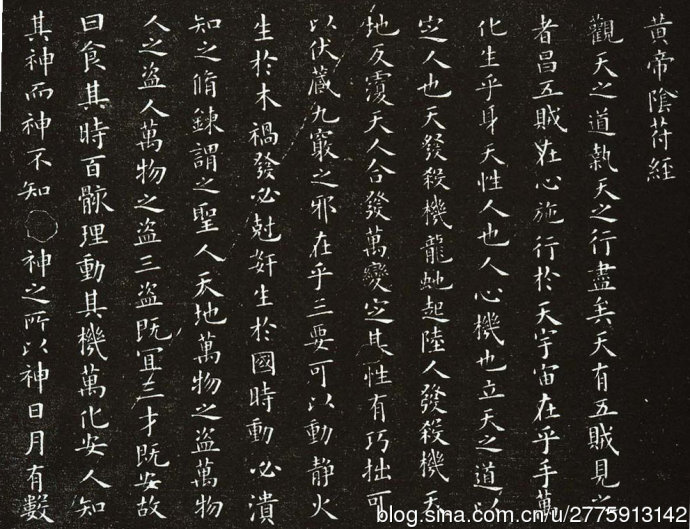 黃帝陰符經
觀天之道執天之行盡矣天有五賊見之
者昌五賊在心施行於天宇宙在乎手萬
化生乎身天性人也人心機也立天之道以
定人也天發殺機龍虵起陸人發殺機天
地反覆天人合發萬變定其性有巧拙可
以伏藏九竅之邪在乎三要可以動靜火
生於木禍發必尅奸生於國時動必潰
知之脩鍊謂之聖人天地萬物之盜萬物
人之盜人萬物之盜三盜既宜三才既安故
曰食其時百骸理動其機萬化安人知
其神而神不知神之所以神日月有數
blog.sina.com.cn/u/2775913142